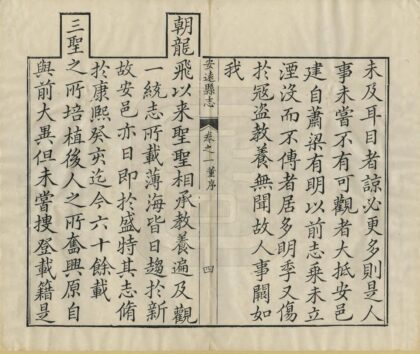 未及耳目者諒必更多則是人
事未嘗不有可觀者大抵安邑
建自蕭梁有明以前志乘未立
湮沒而不傳者居多明季又傷
於寇盜教養無聞故人事闕如
我
安遠縣志 卷之一 董序 四
朝龍飛以来聖聖相承教養遍及觀
一統志所載薄海皆日趨於新
故安邑亦日即於盛特其志脩
於康熙癸亥迄今六十餘載
三聖之所培植後人之所奮興原自
與前大異但未嘗搜登載籍是